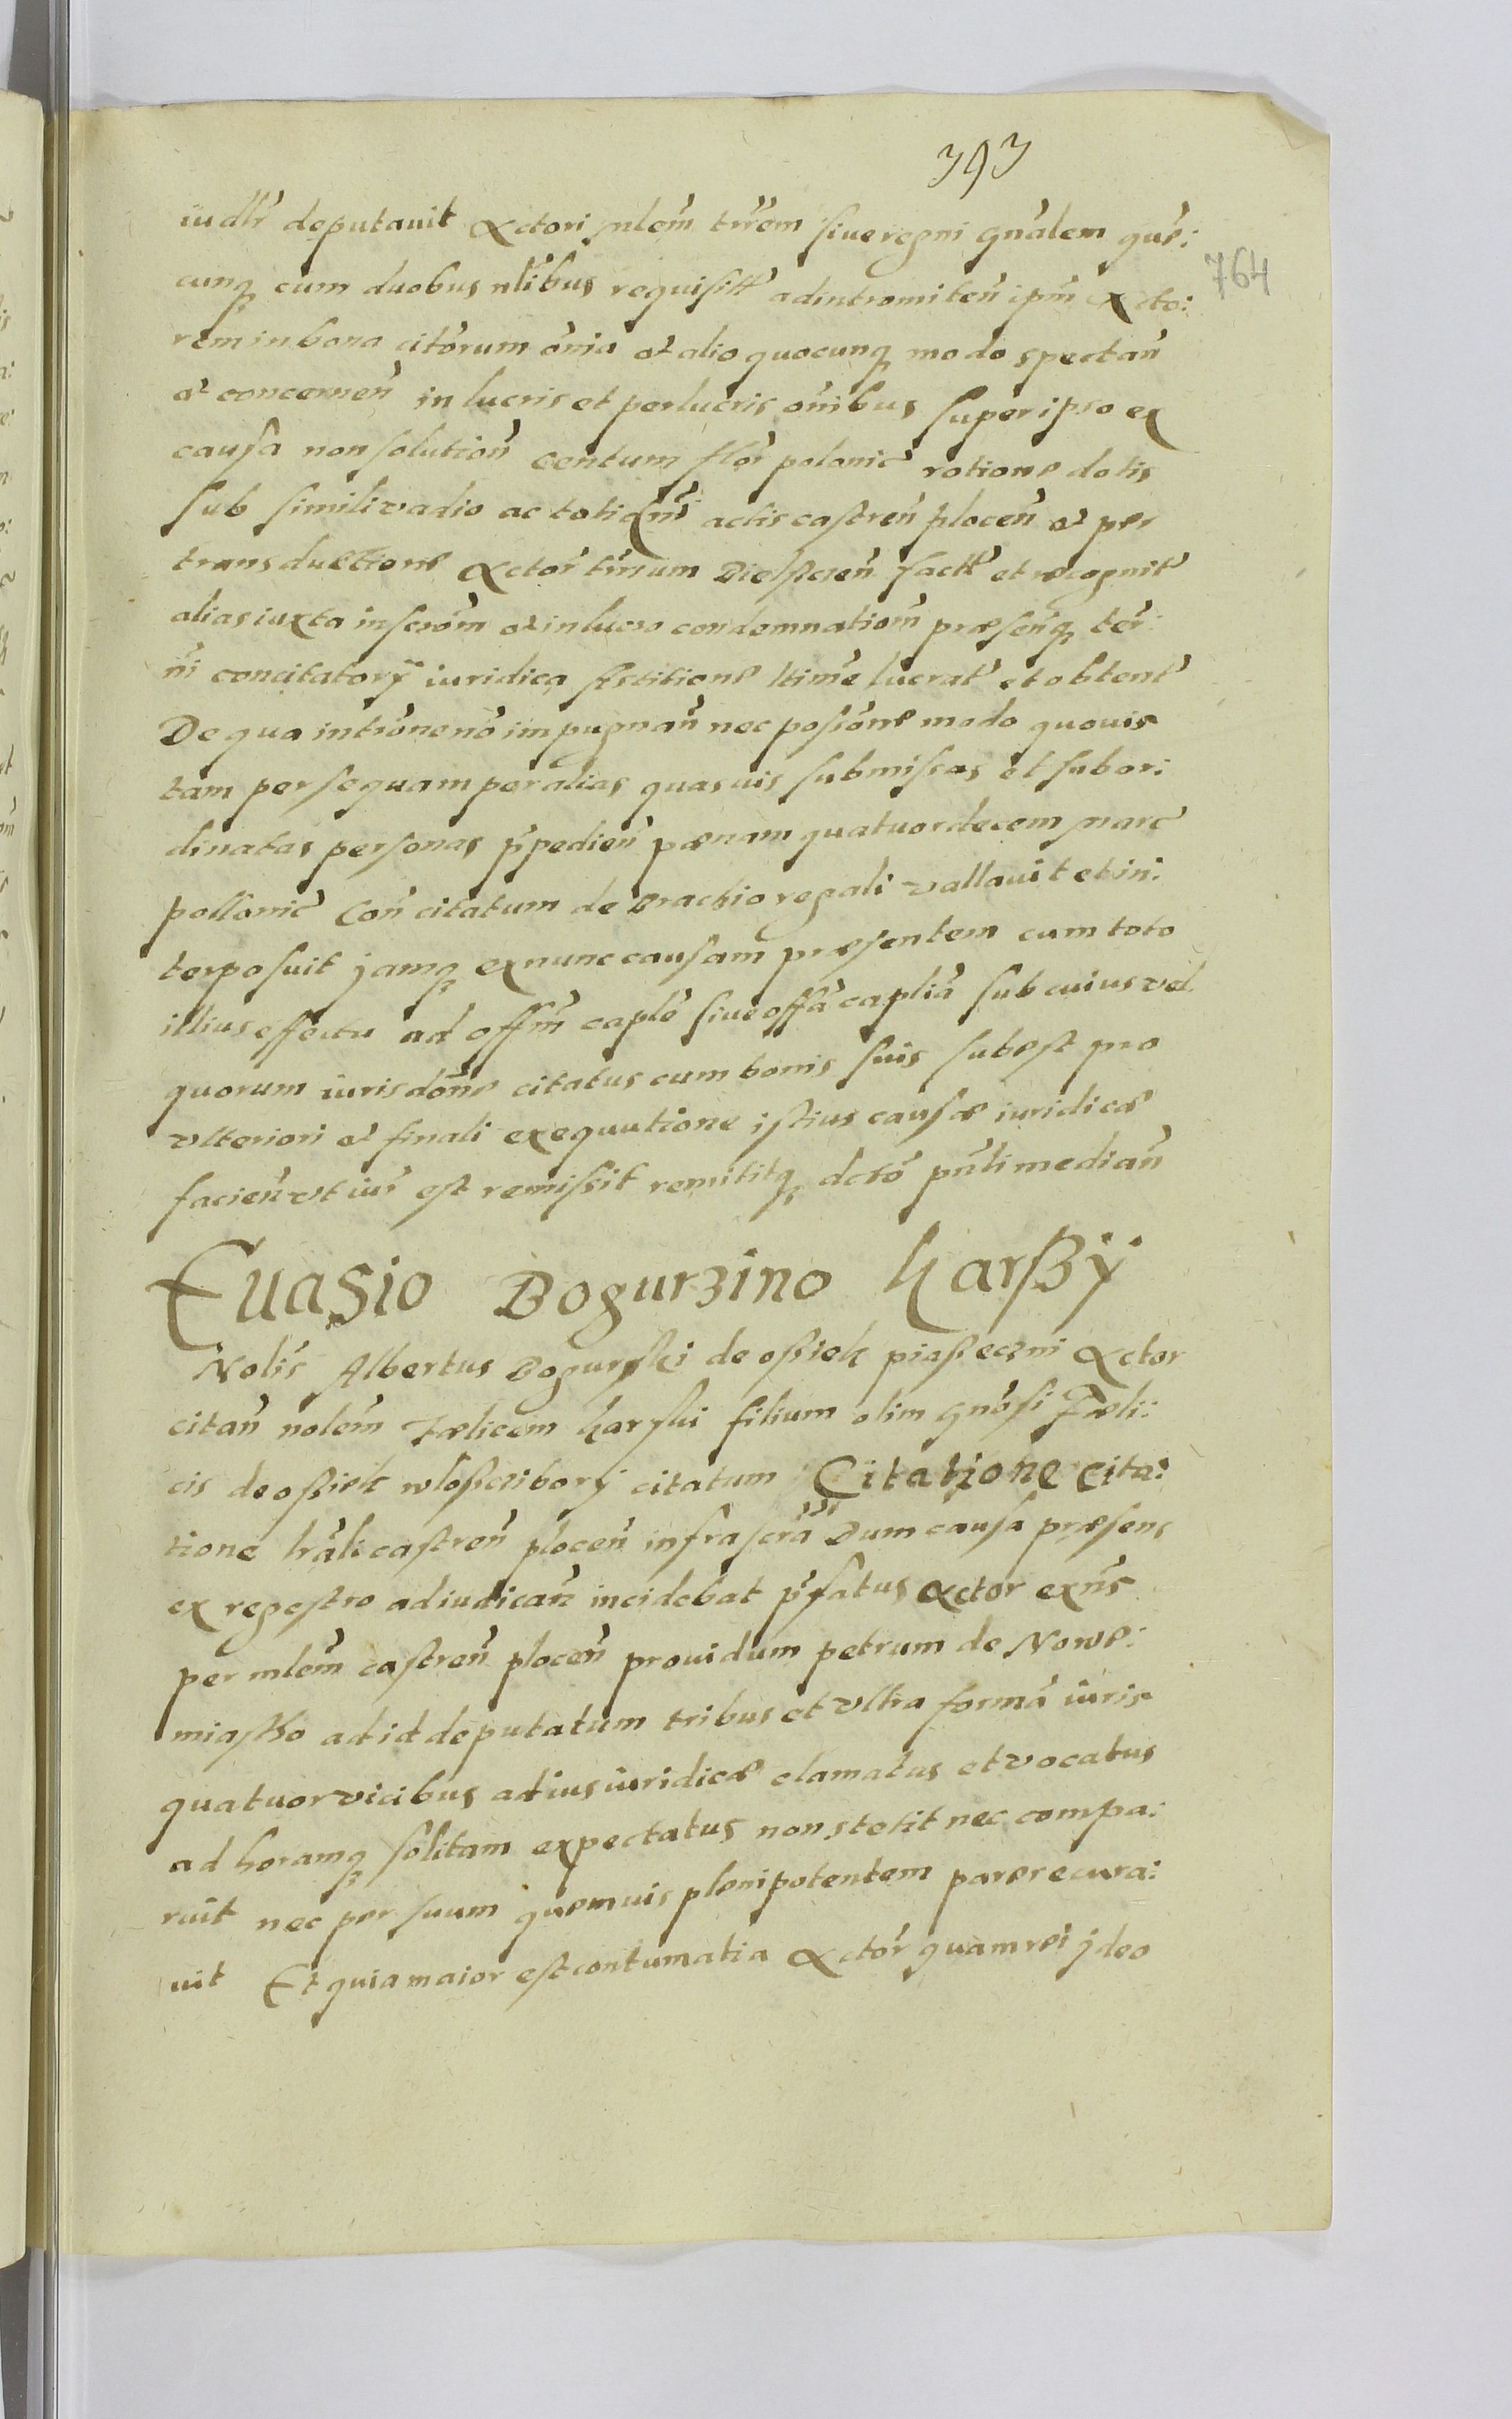 393
764
iudłr deputauit Actori mlem̃ trr̃em siue regni gnãlem quẽ:
cunq cum duobus nlibus requisitt adintromiteñ ipm̃ Acto:
rem in bona citorum om̃ia et alio quocunq modo spectañ
et concerneñ in lucris et perlucris om̃ibus super ipso ex
causa non solutioñ centum flor̃ polonic̃ ratione dotis
sub simili vadio ac toti actis castreñ ploceñ et per
transductione Actor̃ trr̃um factt et recognit̃
alias iuxta inscrõm et in lucro condemnatiom̃ præsenq ter̃:
m̃i concitatorÿ iuridica sistitione ltim̃e lucrat̃ et obtent̃
De qua intrõne nõ impugnañ nec possõne modo quouis
tam per se quam per alias quasuis submissas et subor:
dinatas personas p̃pedieñ pænam quatuordecem marc̃
pollonic̃ Coñ citatum de Brachio regali vallauit et in:
terposuit jamq ex nunc causam præsentem cum toto
illius effectu ad offm̃ caplẽ siue offã capliã sub cuius vel
quorum iurisdõne citatus cum bonis suis subest pro
vlteriori et finali exequutione istius causæ iuridicæ
facieñ vt iur̃ est remissit remititq dctõ pñli mediañ
Euasio Bogurzino Karßÿ
Nolis̃ Albertus Bogurski de oßiek piaßeczni Actor
citañ nolem̃ Fælicem Karski filium olim gnõsi Fæli:
cis de oßiek wloßczibory citatum Citatione cita:
tione lrãli castreñ ploceñ infrascrã Dum causa præsens
ex regestro adiudicañ incidebat p̃fatus Actor exñs
per mlem̃ castreñ ploceñ prouidum petrum de Nowe:
miasto ad id deputatum tribus et vltra formã iuris
quatuor vicibus ad ius iuridicæ clamatus et vocatus
ad horamq solitam expectatus non stetit nec compa:
ruit nec per suum quemuis plenipotentem parere cura:
uit Et quia maior est contumatia Actor̃ quam rei jdeo